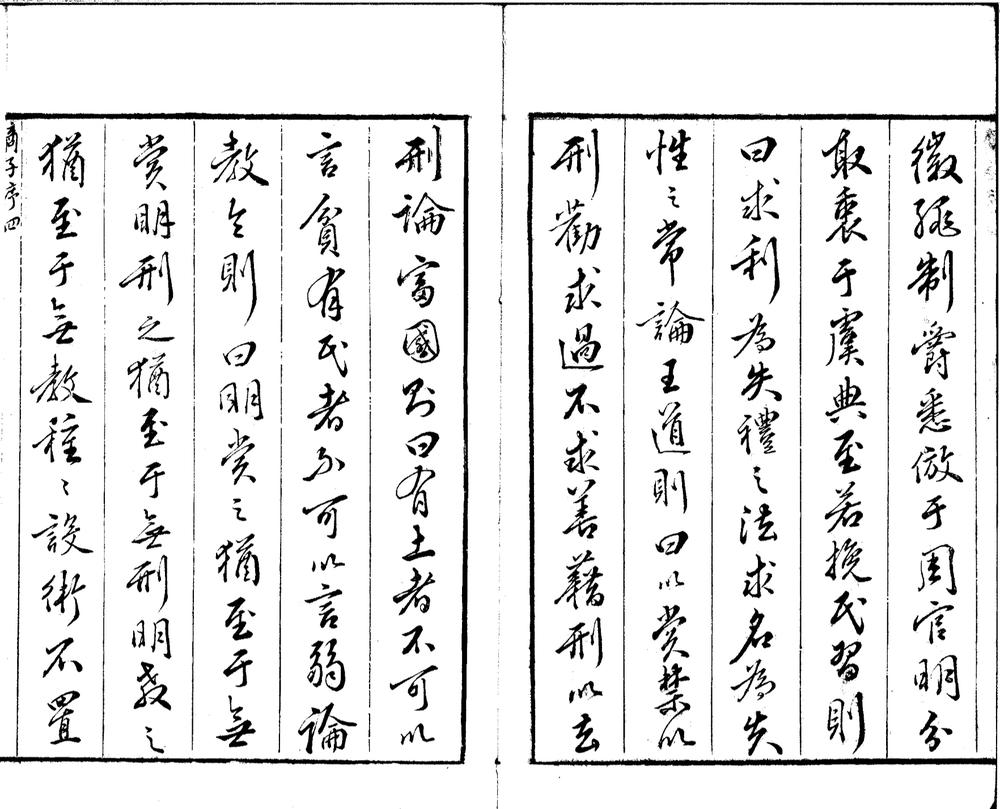 徽制爵悉倣于周官明分
取衷于虞典至若挽民習則
曰求利為失禮之法求名為失
性之常論王道則曰以賞禁以
刑勸求過不求善藉刑以去
刑論富國則曰有土者不可以
言貧有民者不可以言弱論
教令則曰明賞之猶至于無
賞明刑之猶至于無刑明教之
猶至于無教種〻設術不置
商子序四